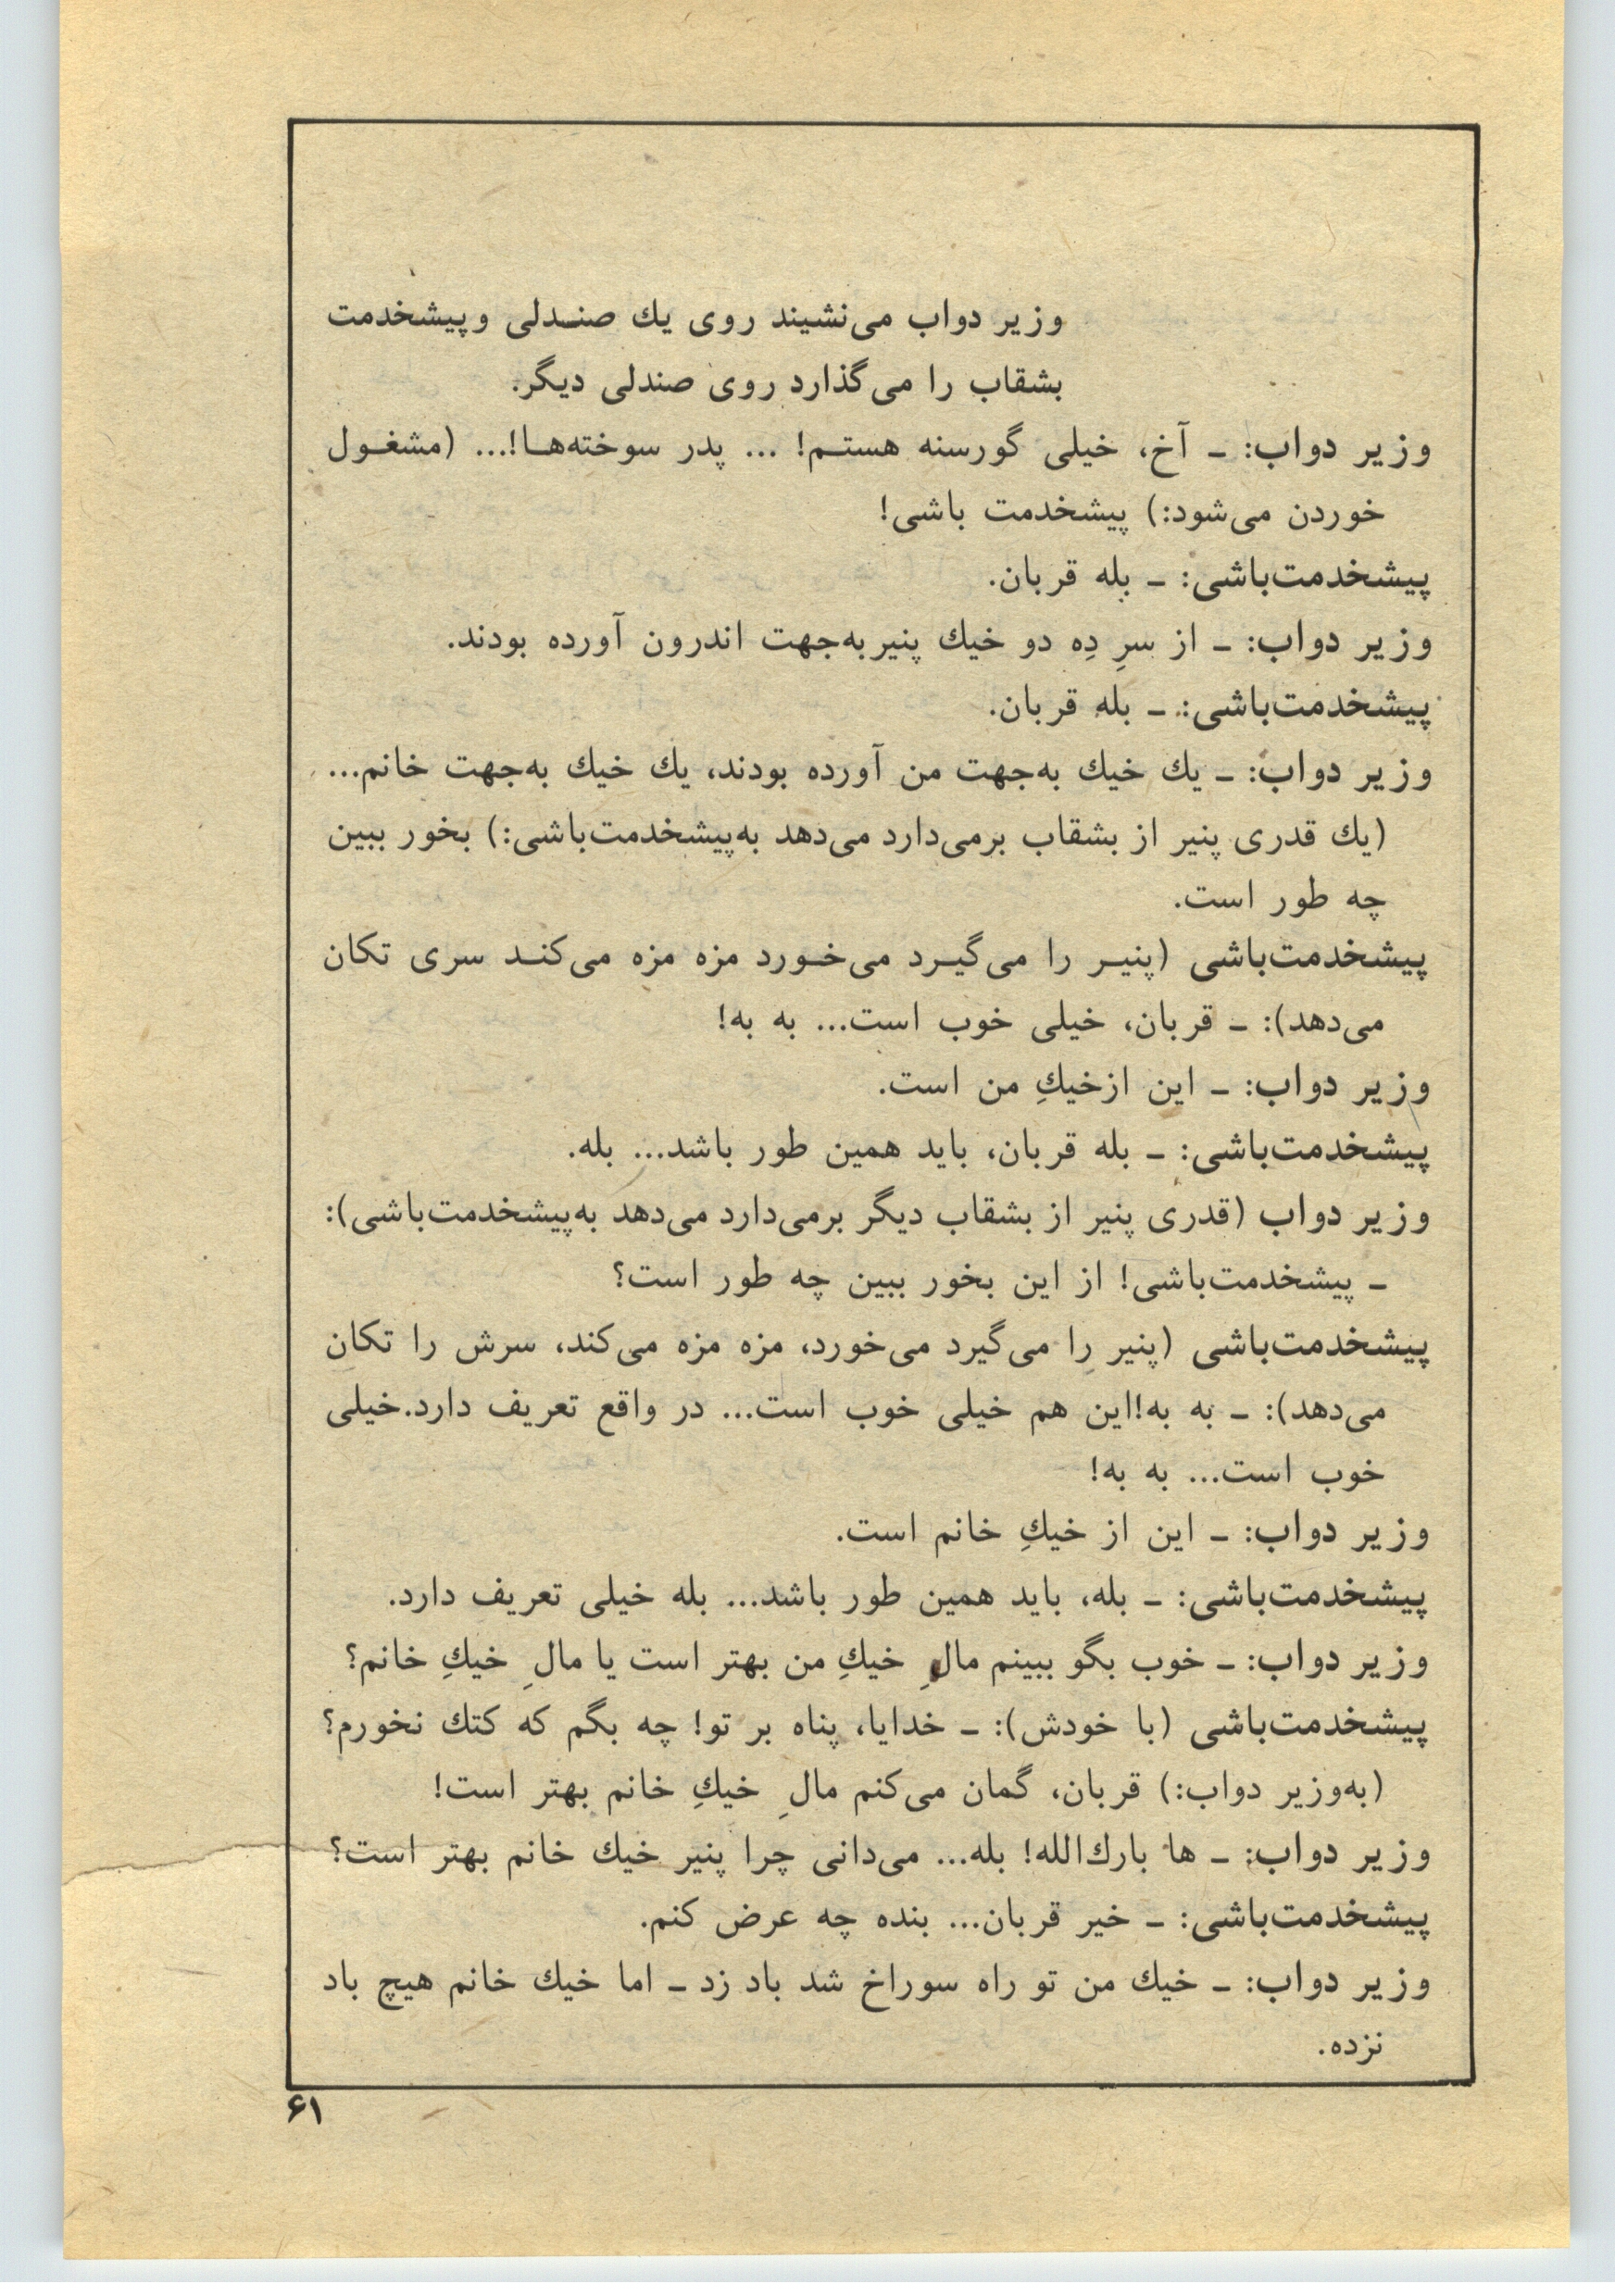 وزیر دواب می‌نشیند روی یك صندلی وپیشخدمت
بشقاب را می‌گذارد روی صندلی دیگر.
وزیر دواب: ـ آخ، خیلی گورسنه هستم! ... پدر سوخته‌ها!... (مشغول
خوردن می‌شود:) پیشخدمت باشی!
پیشخدمت‌باشی: ـ بله قربان.
وزیر دواب: ـ از سرِ دِه دو خیك پنیر به‌جهت اندرون آورده بودند.
پیشخدمت‌باشی: ـ بله قربان.
وزیر دواب: ـ یك خیك به‌جهت من آورده بودند، یك خیك به‌جهت خانم...
(یك قدری پنیر از بشقاب برمی‌دارد می‌دهد به‌پیشخدمت‌باشی:) بخور ببین
چه طور است.
پیشخدمت‌باشی (پنیر را می‌گیرد می‌خورد مزه مزه می‌کند سری تکان
می‌دهد): ـ قربان، خیلی خوب است... به به!
وزیر دواب: ـ این ازخیكِ من است.
پیشخدمت‌باشی: ـ بله قربان، باید همین طور باشد... بله.
وزیر دواب (قدری پنیر از بشقاب دیگر برمی‌دارد می‌دهد به‌پیشخدمت‌باشی):
ـ پیشخدمت‌باشی! از این بخور ببین چه طور است؟
پیشخدمت‌باشی (پنیر را می‌گیرد می‌خورد، مزه مزه می‌کند، سرش را تکان
می‌دهد): ـ به به!این هم خیلی خوب است... در واقع تعریف دارد.خیلی
خوب است... به به!
وزیر دواب: ـ این از خیكِ خانم است.
پیشخدمت‌باشی: ـ بله، باید همین طور باشد... بله خیلی تعریف دارد.
وزیر دواب: ـ خوب بگو ببینم مالِ خیكِ من بهتر است یا مالِ خیكِ خانم؟
پیشخدمت‌باشی (با خودش): ـ خدایا، پناه بر تو! چه بگم که کتك نخورم؟
(به‌وزیر دواب:) قربان، گمان می‌کنم مالِ خیكِ خانم بهتر است!
وزیر دواب: ـ ها بارك‌الله! بله... می‌دانی چرا پنیر خیك خانم بهتر است؟
پیشخدمت‌باشی: ـ خیر قربان... بنده چه عرض کنم.
وزیر دواب: ـ خیك من تو راه سوراخ شد باد زد ـ اما خیك خانم هیچ باد
نزده.
۶۱